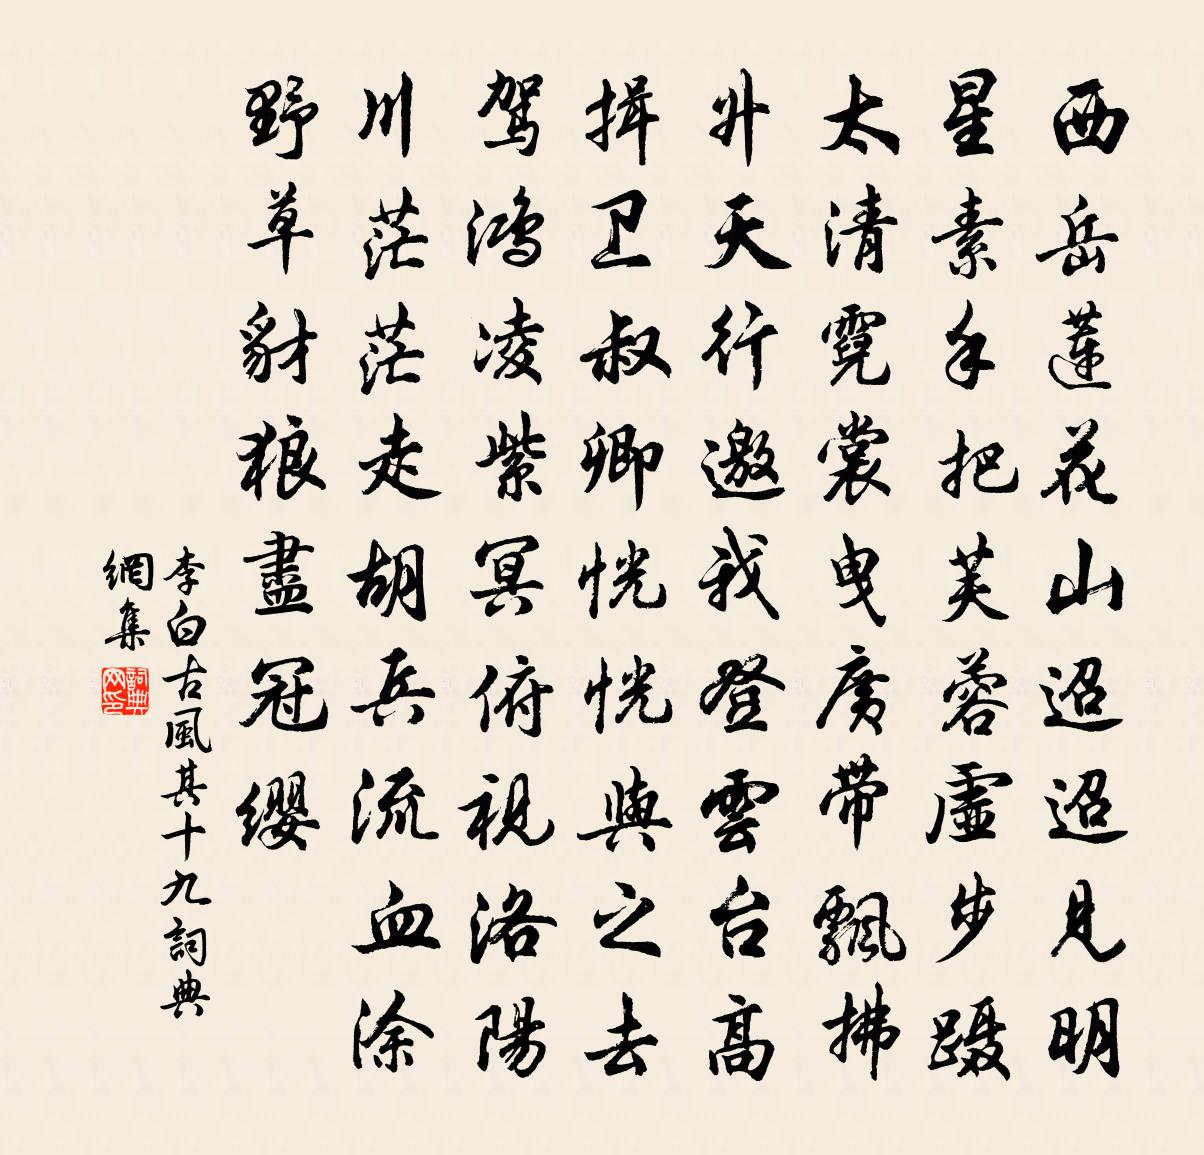 西岳蓮花山迢迢見明
星素手把芙蓉虛步蹑
太清霓裳曳廣帶飄拂
升天行邀我登雲台高
揖卫叔卿恍恍與之去
驾鸿凌紫冥俯視洛陽
川茫茫走胡兵流血涂
野草豺狼盡冠缨
李白古風其十九詞典
網集
詞典
网印